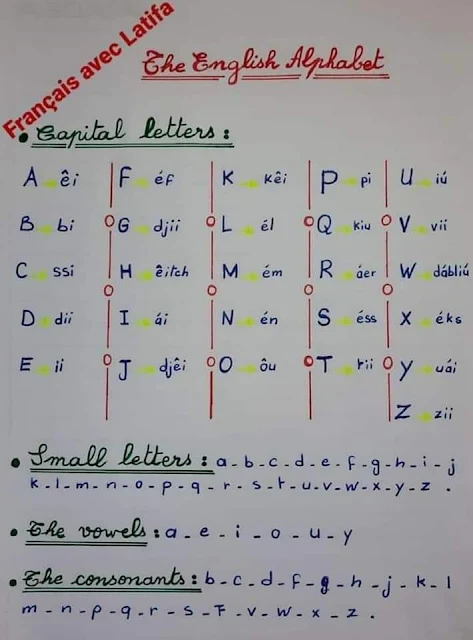 Français avec Latifa
The English Alphabet
• Capital letters :
A → êi F → éf K → kêi P → pi U → iú
B → bi G → djii L → él Q → kiu V → vii
C → ssi H → êitch M → ém R → áer W → dábliú
D → dii I → ái N → én S → éss X → éks
E → ii J → djêi O → ôu T → tii Y → uái
Z → zii
• Small letters : a - b - c - d - e - f - g - h - i - j
k - l - m - n - o - p - q - r - s - t - u - v - w - x - y - z .
• The vowels : a - e - i - o - u - y
• The consonants : b - c - d - f - g - h - j - k - l
m - n - p - q - r - s - t - v - w - x - z .